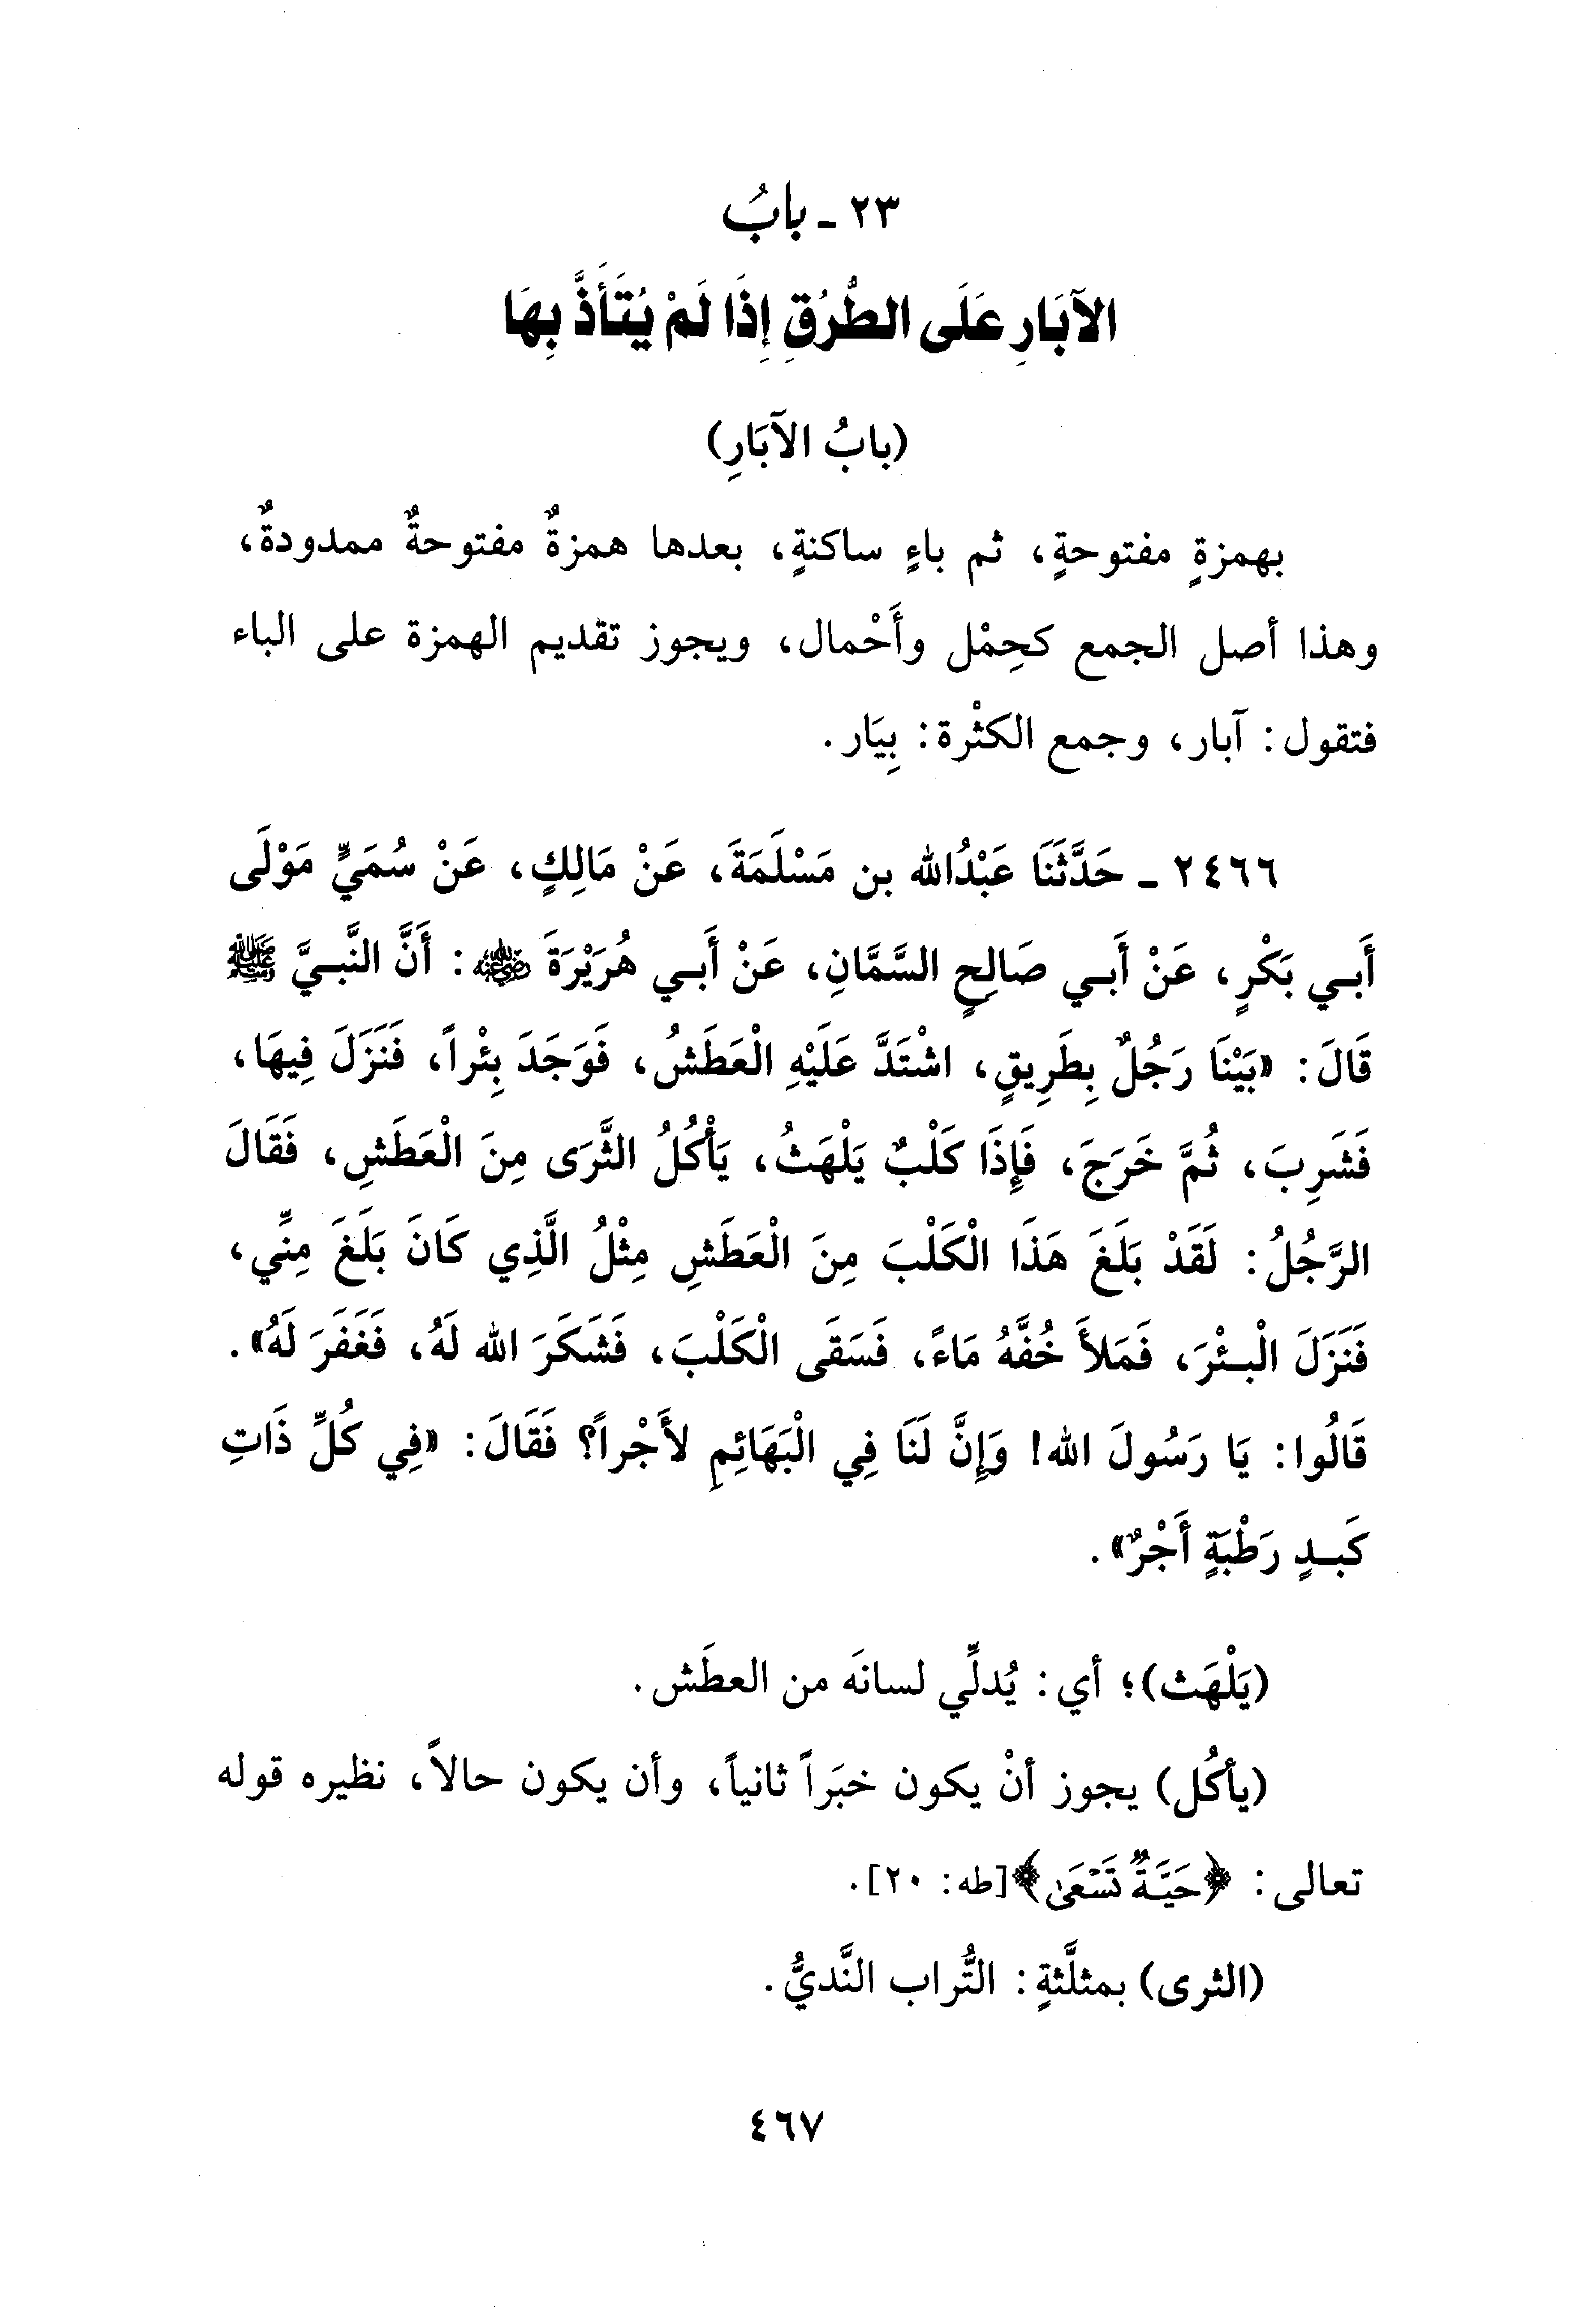 ٢٣ ـ بابُ
الآبَارِ عَلَى الطُّرُقِ إِذَا لَمْ يُتَأَذَّ بِهَا
(بابُ الآبَارِ)
بهمزةٍ مفتوحةٍ، ثم باءٍ ساكنةٍ، بعدها همزةٌ مفتوحةٌ ممدودةٌ،
وهذا أصل الجمع كحِمْل وأَحْمال، ويجوز تقديم الهمزة على الباء
فتقول: آبار، وجمع الكثْرة: بِيَار.
٢٤٦٦ ـ حَدَّثَنَا عَبْدُالله بن مَسْلَمَةَ، عَنْ مَالِكٍ، عَنْ سُمَيٍّ مَوْلَى
أَبـي بَكْرٍ، عَنْ أَبـي صَالِحٍ السَّمَّانِ، عَنْ أَبـي هُرَيْرَةَ ﵁: أَنَّ النَّبـيَّ ﷺ
قَالَ: «بَيْنَا رَجُلٌ بِطَرِيقٍ، اشْتَدَّ عَلَيْهِ الْعَطَشُ، فَوَجَدَ بِئْراً، فَنَزَلَ فِيهَا،
فَشَرِبَ، ثُمَّ خَرَجَ، فَإِذَا كَلْبٌ يَلْهَثُ، يَأْكُلُ الثَّرَى مِنَ الْعَطَشِ، فَقَالَ
الرَّجُلُ: لَقَدْ بَلَغَ هَذَا الْكَلْبَ مِنَ الْعَطَشِ مِثْلُ الَّذِي كَانَ بَلَغَ مِنِّي،
فَنَزَلَ الْبـئْرَ، فَمَلأَ خُفَّهُ مَاءً، فَسَقَى الْكَلْبَ، فَشَكَرَ الله لَهُ، فَغَفَرَ لَهُ».
قَالُوا: يَا رَسُولَ الله! وَإِنَّ لَنَا فِي الْبَهَائِمِ لأَجْراً؟ فَقَالَ: «فِي كُلِّ ذَاتِ
كَبـدٍ رَطْبَةٍ أَجْرٌ».
(يَلْهَث)؛ أي: يُدلِّي لسانَه من العطَش.
(يأكُل) يجوز أنْ يكون خبَراً ثانياً، وأن يكون حالاً، نظيره قوله
تعالى: ﴿حَيَّةٌ تَسْعَىٰ﴾[طه: ٢٠].
(الثرى) بمثلَّثةٍ: التُّراب النَّديُّ.
٤٦٧